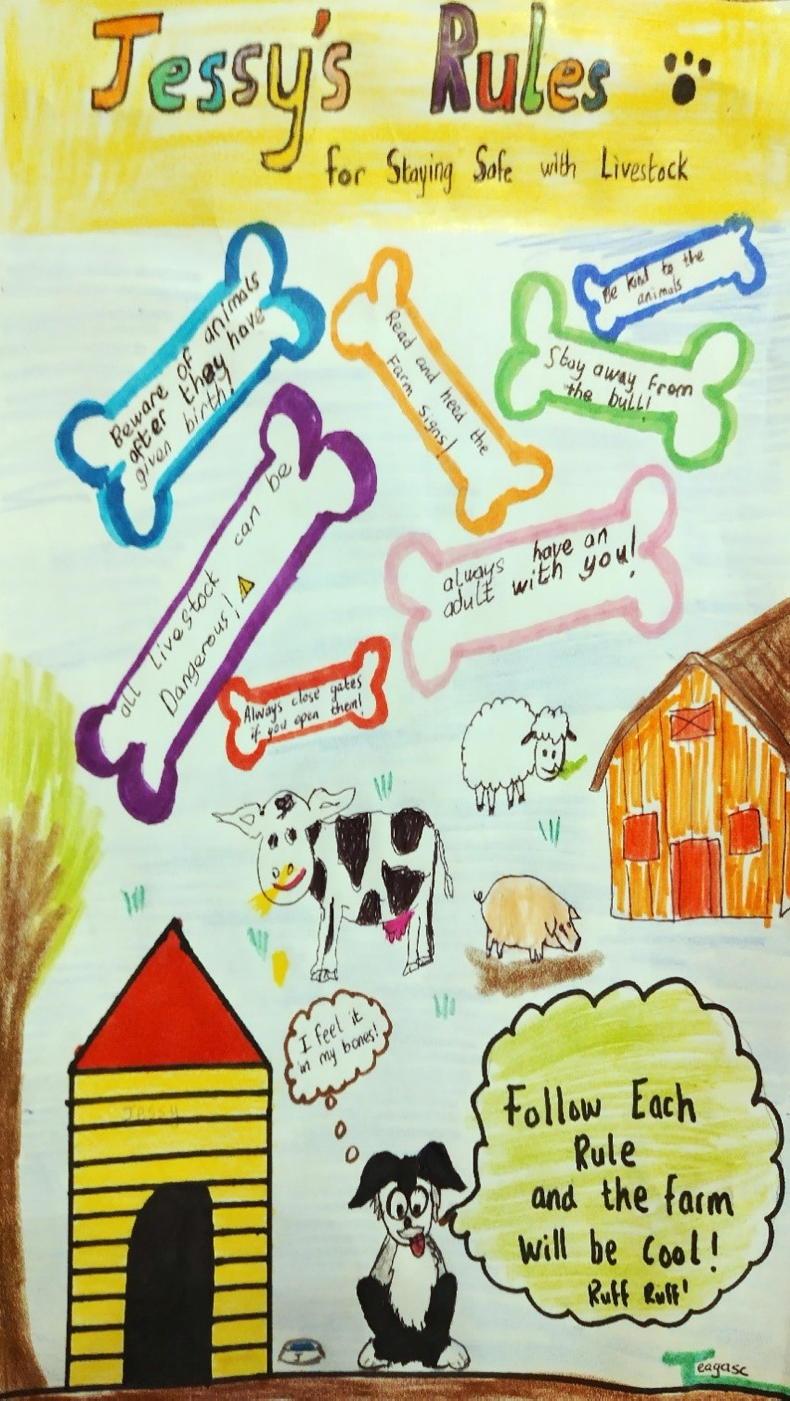 Jessy's Rules
for Staying Safe with Livestock
Beware of animals
after they have
given birth!
Read and heed the
Farm signs!
Be kind to the
animals
Stay away from
the bull!
all Livestock can be
Dangerous!
always have an
adult with you!
Always close gates
if you open them!
I feel it
in my bones!
Jessy
Follow Each
Rule
and the farm
will be cool!
Ruff Ruff!
Teagasc